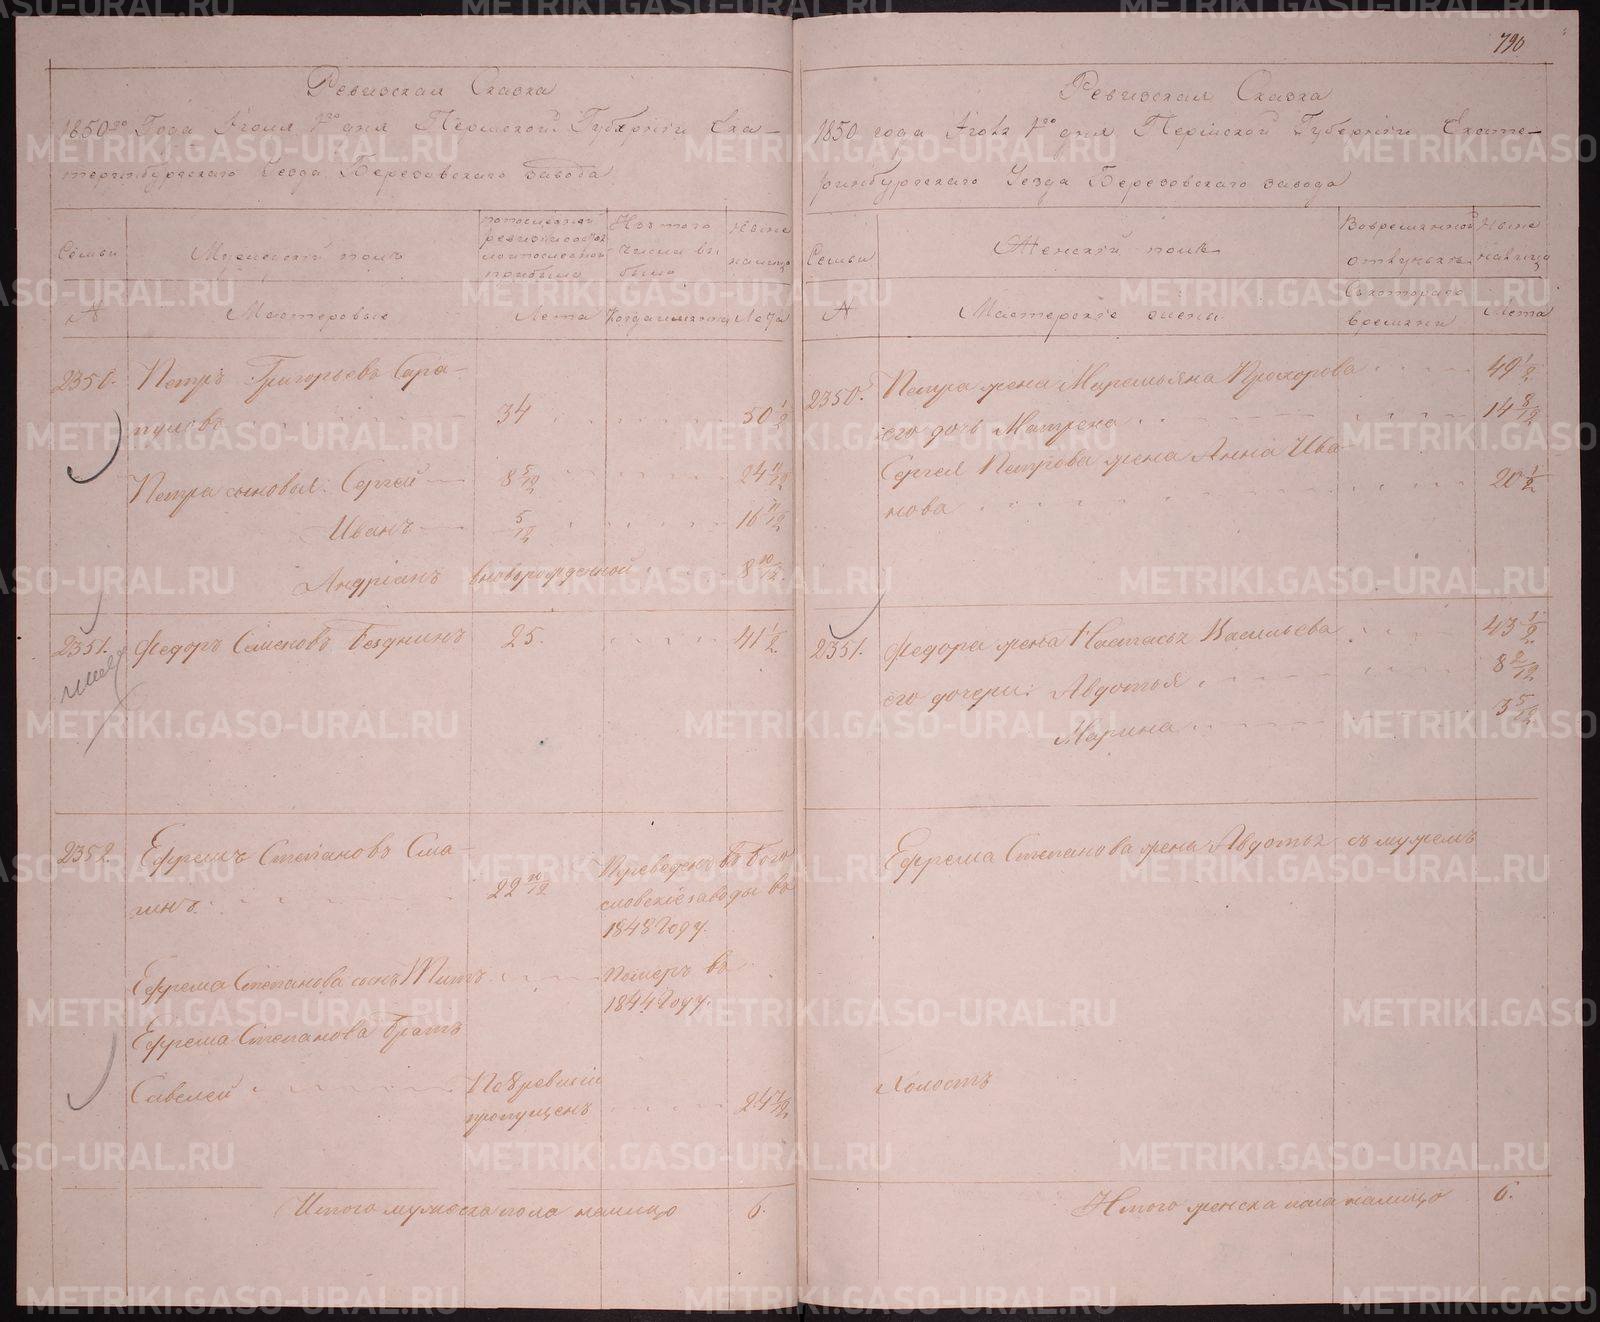 790
Ревизская Сказка
1850го Года Июля 1го дня Пермской Губерніи Ека-
теринбургскаго Уезда Березовскаго завода
Семьи
Мужескій полъ
По последней
ревизіи состояло
и после оной
прибыло
Изъ того
числа вы
было
Ныне
налицо
№
Мастеровые
Лета
Когда именно
Лета
2350.
Петръ Григорьевъ Сара-
пуловъ
34
50 1/2
Петра сыновья: Сергей
8 5/12
24 11/12
Иванъ
5/12
16 11/12
Андріанъ
вноворожденной
8 10/12
2351.
Федоръ Семеновъ Бедринъ
25.
41 1/2
2352.
Ефремъ Степановъ Сма-
гинъ
22 10/12
Переведенъ въ Бого
словскіе заводы въ
1848 Году.
Ефрема Степанова сынъ Титъ
Померъ въ
1844 Году.
Ефрема Степанова братъ
Савелей
По 8 ревизіи
пропущенъ
24 7/12
Итого мужеска пола налицо
6.
Ревизская Сказка
1850 года Июля 1го дня Пермской Губерніи Екате-
ринбургскаго Уезда Березовскаго завода
Семьи
Женскій полъ
Во временной
отлучкѣ
Ныне
налицо
№
Мастерскіе жены
Съ котораго
времяни
Лета
2350.
Петра жена Маремьяна Прохорова
49 1/2
его дочь Матрена
14 8/12
Сергея Петрова жена Анна Ива
нова
20 1/2
2351.
Федора жена Настасья Васильева
43 1/2
его дочери: Авдотья
8 2/12
Марина
3 5/12
Ефрема Степанова жена Авдотья съ мужемъ
Холостъ
Итого женска пола налицо
6.
METRIKI.GASO-URAL.RU